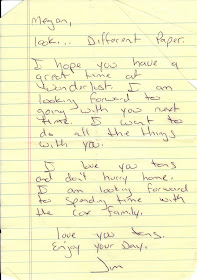 Megan,
look... Different Paper.
I hope you have a
great time at
wanderlust. I am
looking forward to
going with you next
time. I want to
do all the things
with you.
I love you tons
and don't hurry home.
I am looking forward
to spending time with
the Cor family.
love you tons.
Enjoy your Day.
Jim